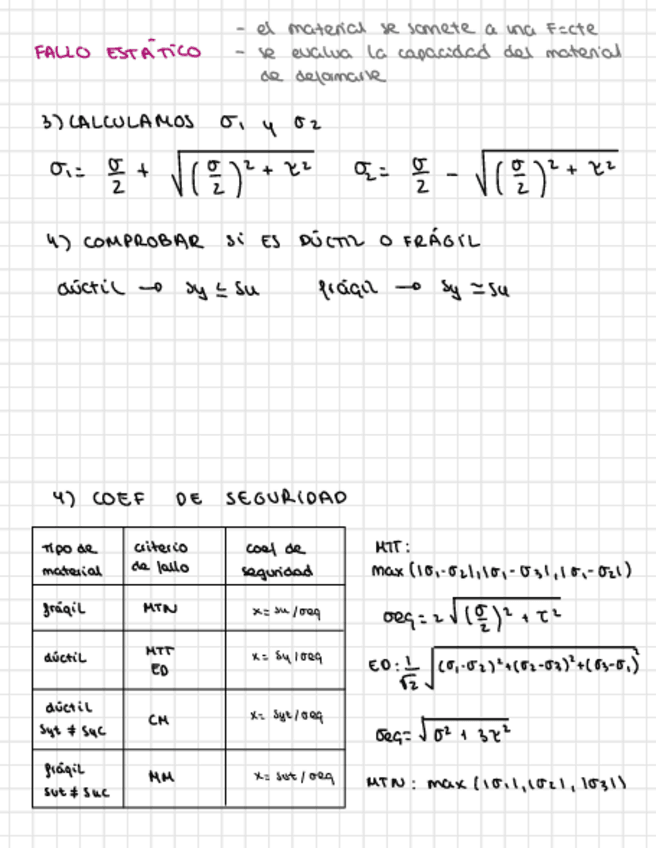 - el material se somete a una F=cte
FALLO ESTÁTICO - se evalua la capacidad del material
de deformarse
3) CALCULAMOS σ1 y σ2
σ1 = σ/2 + √((σ/2)² + τ²) σ2 = σ/2 - √((σ/2)² + τ²)
4) COMPROBAR SI ES DÚCTIL O FRÁGIL
dúctil → Sy ≤ Su frágil → Sy ≃ Su
4) COEF DE SEGURIDAD
Tipo de material | criterio de fallo | coef de seguridad
frágil | MTN | x = Su/σeq
dúctil | MTT ED | x = Sy/σeq
dúctil Syt ≠ Syc | CM | x = Syt/σeq
frágil Sut ≠ Suc | MM | x = Sut/σeq
MTT:
max (|σ1-σ2|, |σ1-σ3|, |σ1-σ2|)
σeq = 2√((σ/2)² + τ²)
ED: 1/√2 √((σ1-σ2)²+(σ2-σ3)²+(σ3-σ1)²
σeq = √σ² + 3τ²
MTN: max (|σ1|, |σ2|, |σ3|)